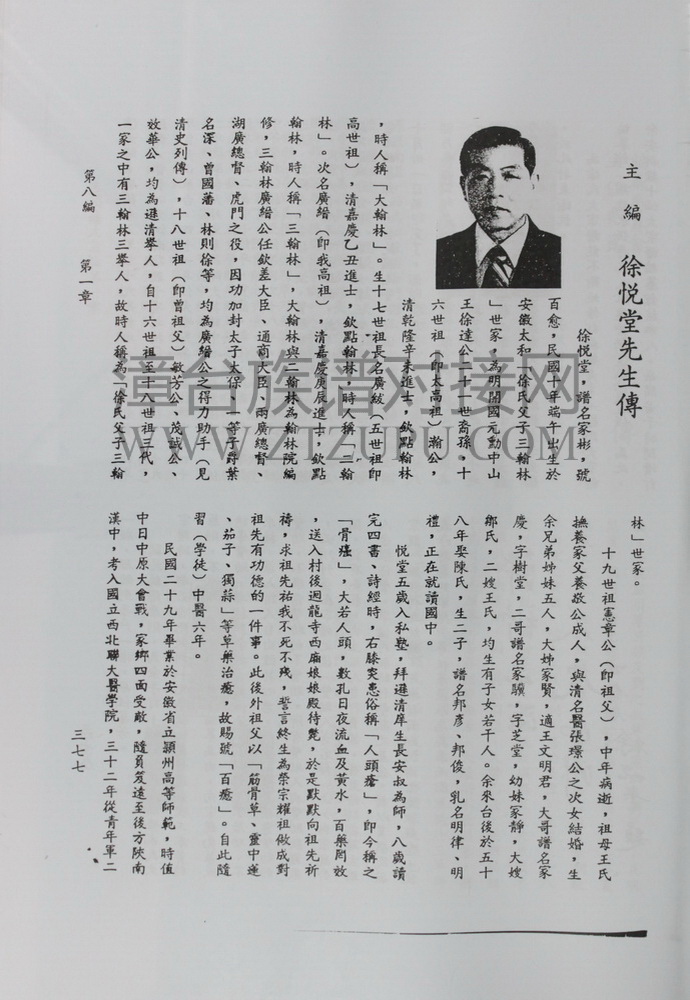 主編 徐悦堂先生傳
徐悦堂，譜名家彬，號
百愈，民國十年端午出生於
安徽太和「徐氏父子三翰林
」世家，為明開國元勳中山
王徐達公二十一世裔孫，十
六世祖（即太高祖）瀚公，
清乾隆辛未進士，欽點翰林
，時人稱「大翰林」。生十七世祖長名廣紱（五世祖即
高世祖），清嘉慶乙丑進士，欽點翰林，時人稱「二翰
林」。次名廣縉（即我高祖），清嘉慶庚辰進士，欽點
翰林，時人稱「三翰林」，大翰林與二翰林為翰林院編
修，三翰林廣縉公任欽差大臣、通商大臣、兩廣總督、
湖廣總督、虎門之役，因功加封太子太保，一等子爵葉
名深、曾國藩、林則徐等，均為廣縉公之得力助手（見
清史列傳），十八世祖（即曾祖父）敏芳公、茂誠公、
效華公，均為遜清擧人，自十六世祖至十八世祖三代，
一家之中有三翰林三擧人，故時人稱為「徐氏父子三翰
林」世家。
十九世祖憲章公（即祖父），中年病逝，祖母王氏
撫養家父養敬公成人，與清名醫張璟公之次女結婚，生
余兄弟姊妹五人，大姊家賢，適王文明君，大哥譜名家
慶，字樹堂，二哥譜名家驥，字芝堂，幼妹家靜，大嫂
鄉氏，二嫂王氏，均生有子女若干人。余來台後於五十
八年娶陳氏，生二子，譜名邦彥、邦俊，乳名明律、明
禮，正在就讀國中。
悦堂五歲入私塾，拜遜清庠生長安叔為師，八歲讀
完四書、詩經時，右膝突患俗稱「人頭瘡」，即今稱之
「骨癌」，大若人頭，數孔日夜流血及黃水，百藥罔效
，送入村後迴龍寺西廂娘娘殿待斃，於是默默向祖先祈
祷，求祖先祐我不死不殘，誓言終生為榮宗耀祖做成對
祖先有功德的一件事。此後外祖父以「筋骨草、靈中蓮
、茄子、獨蒜」等草藥治癒，故賜號「百癒」。自此隨
習（學徒）中醫六年。
民國二十九年畢業於安徽省立潁州高等師範，時值
中日中原大會戰，家鄉四面受敵，隨負笈遠至後方陝南
漢中，考入國立西北聯大醫學院，三十二年從青年軍二
第八編 第一章
三七七
漳台族谱对接网
WWW.ZTZUPU.COM